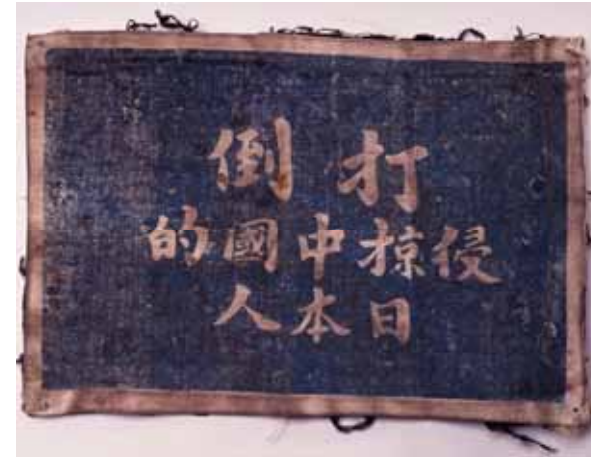 打倒
侵掠中國的
日本人